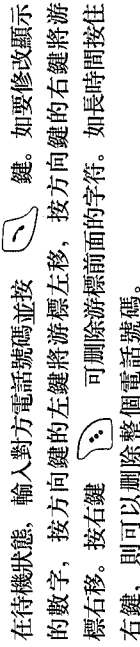 在待機狀態，輸入對方電話號碼並按 鍵。如要修改顯示
的數字，按方向鍵的左鍵將游標左移，按方向鍵的右鍵將游
標右移。按右鍵 可刪除游標前面的字符。如長時間按住
右鍵，則可以刪除整個電話號碼。